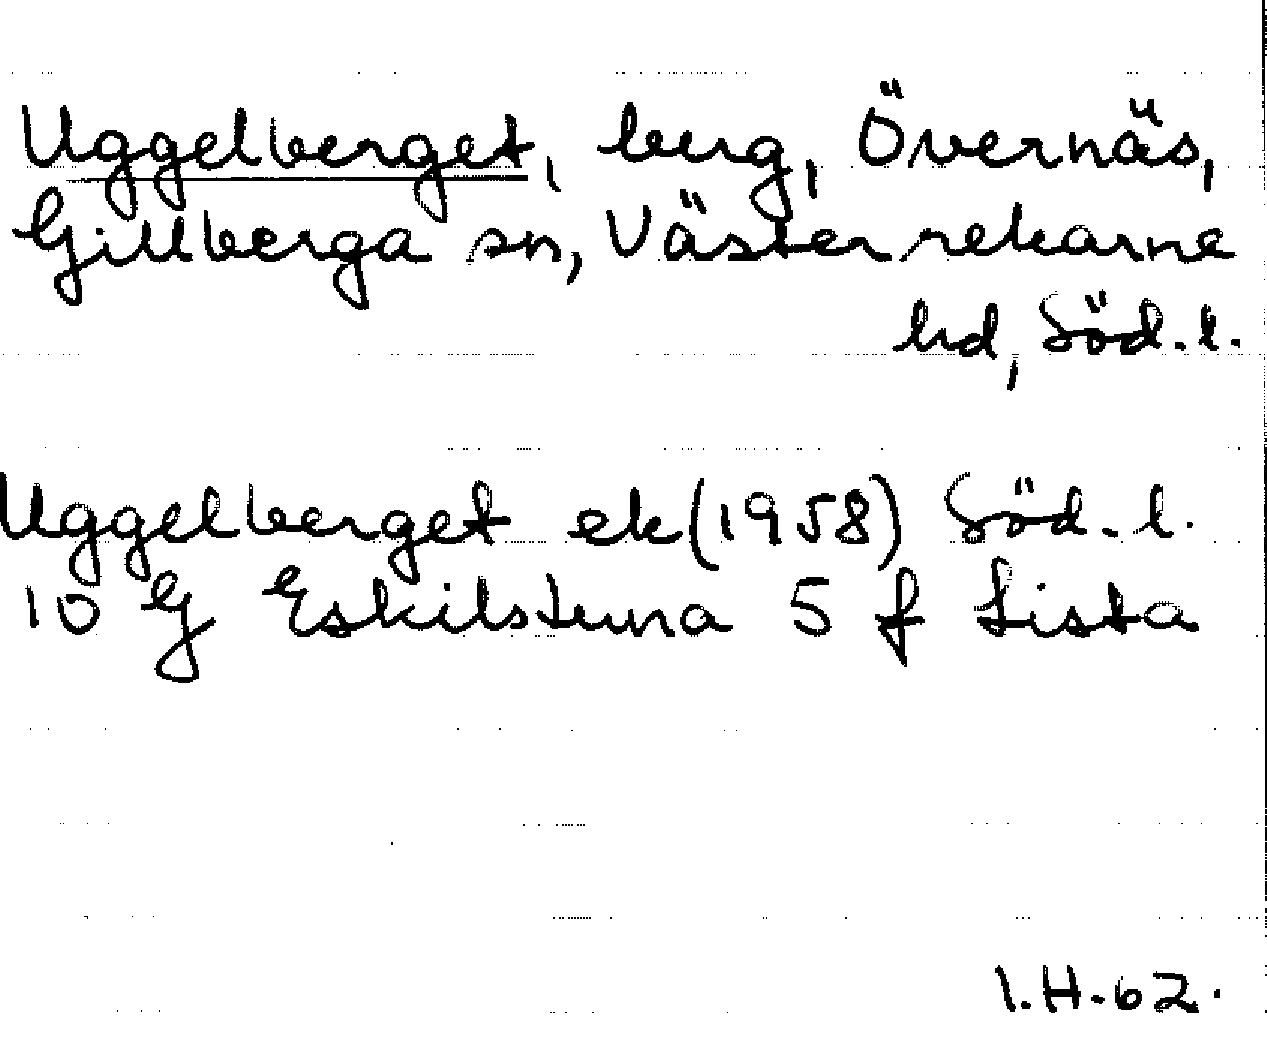 Uggelberget, berg, Övernäs,
Gillberga sn, Västerrekarne
hd, Söd.l.
Uggelberget ek(1958) Söd.l.
10 G Eskilstuna 5 f Lista
I.H.62.